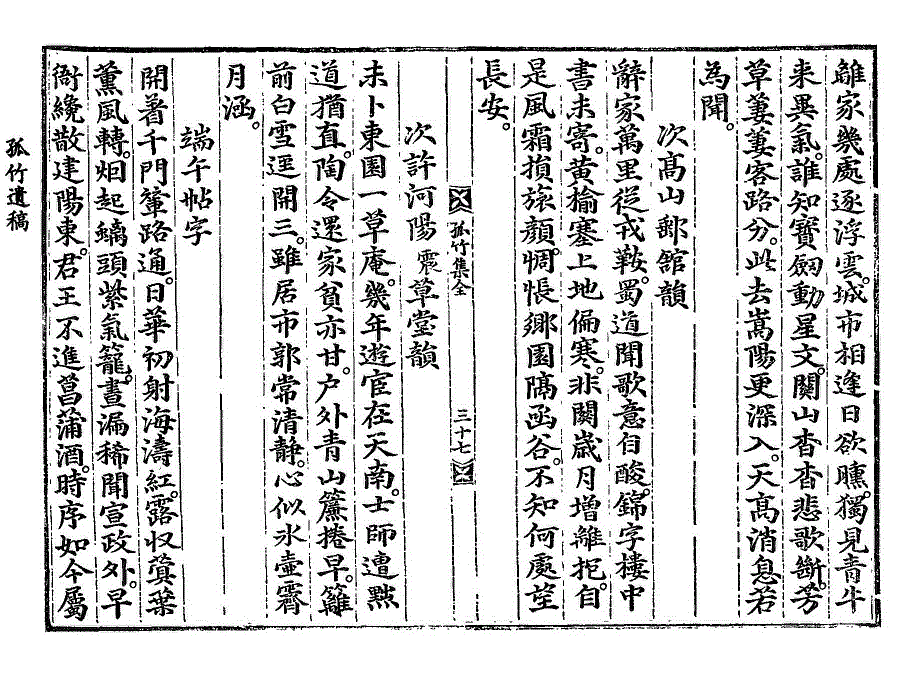 離家幾處逐浮雲。城市相逢日欲曛。獨見青牛
来異氣。誰知寶劒動星文。關山杳杳悲歌斷。芳
草萋萋客路分。此去嵩陽更深入。天高消息若
為聞。
次高山郵舘韻
辭家萬里從戎鞍。蜀道聞歌意自酸。錦字樓中
書未寄。黃榆塞上地偏寒。非關歲月增離抱。自
是風霜損旅顏。惆悵鄉園隔函谷。不知何處望
長安。
孤竹集全
三十七
次許河陽震草堂韻
未卜東園一草庵。幾年遊宦在天南。士師遭黜
道猶直。陶令還家貧亦甘。戶外青山簾捲早。籬
前白雪逕開三。雖居市郭常清靜。心似氷壺霽
月涵。
端午帖字
開著千門輦路通。日華初射海濤紅。露收蓂葉
薰風轉。烟起螭頭紫氣籠。晝漏稀聞宣政外。早
衙纔散建陽東。君王不進菖蒲酒。時序如今屬
孤竹遺稿